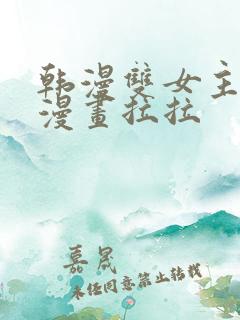 韩漫雙女主
漫畫拉拉
嘉晟
未经同意禁止转载